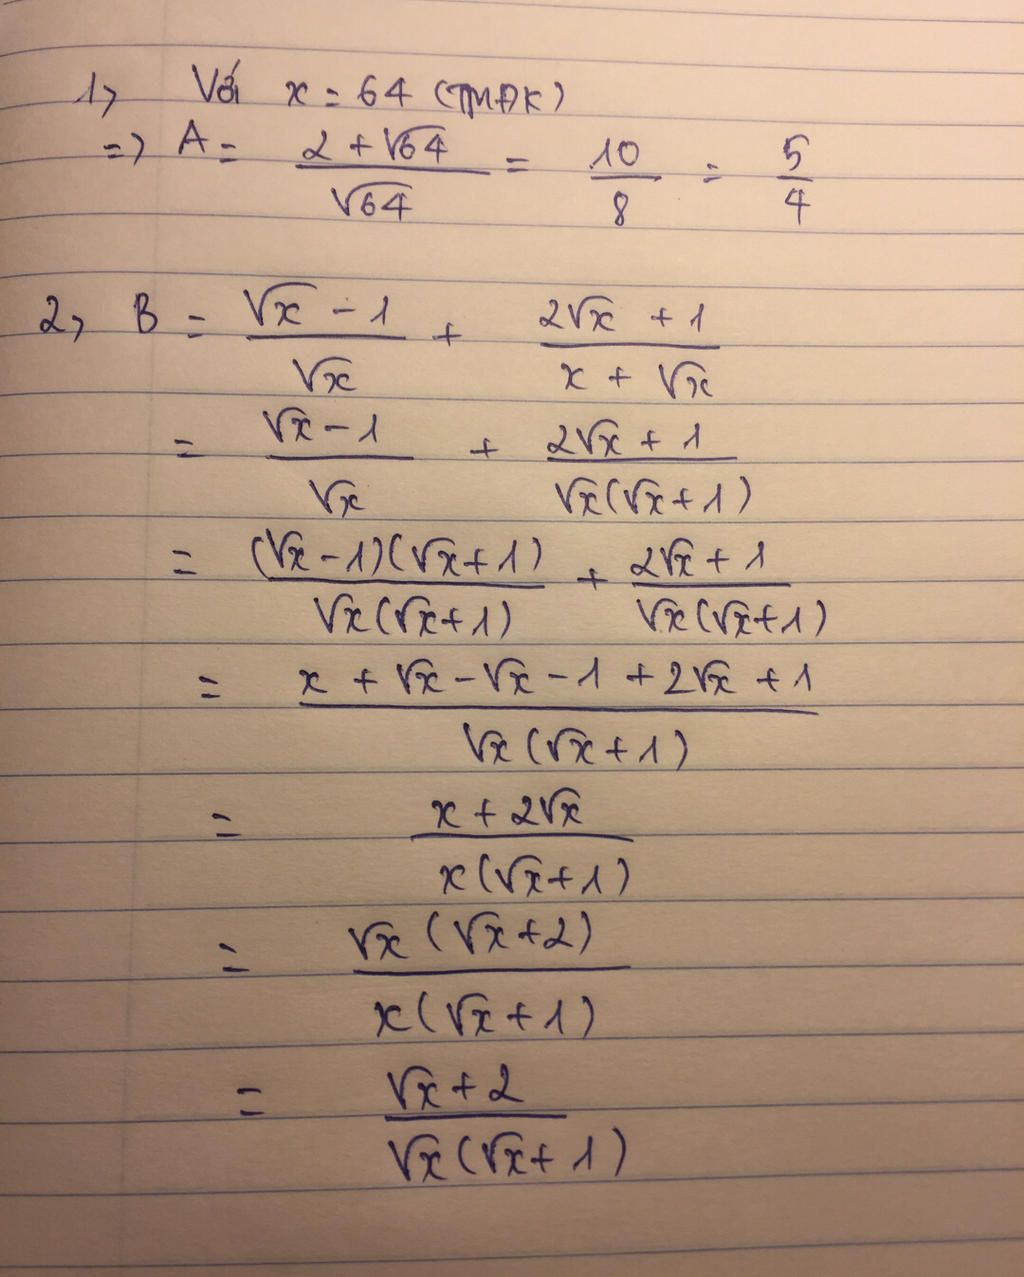 1, Với x = 64 (TMĐK)
=> A = (2 + √64)/√64 = 10/8 = 5/4
2, B = (√x - 1)/√x + (2√x + 1)/(x + √x)
= (√x - 1)/√x + (2√x + 1)/(√x(√x + 1))
= ((√x - 1)(√x + 1))/(√x(√x + 1)) + (2√x + 1)/(√x(√x + 1))
= (x + √x - √x - 1 + 2√x + 1)/(√x(√x + 1))
= (x + 2√x)/(x(√x + 1))
= (√x(√x + 2))/(x(√x + 1))
= (√x + 2)/(√x(√x + 1))